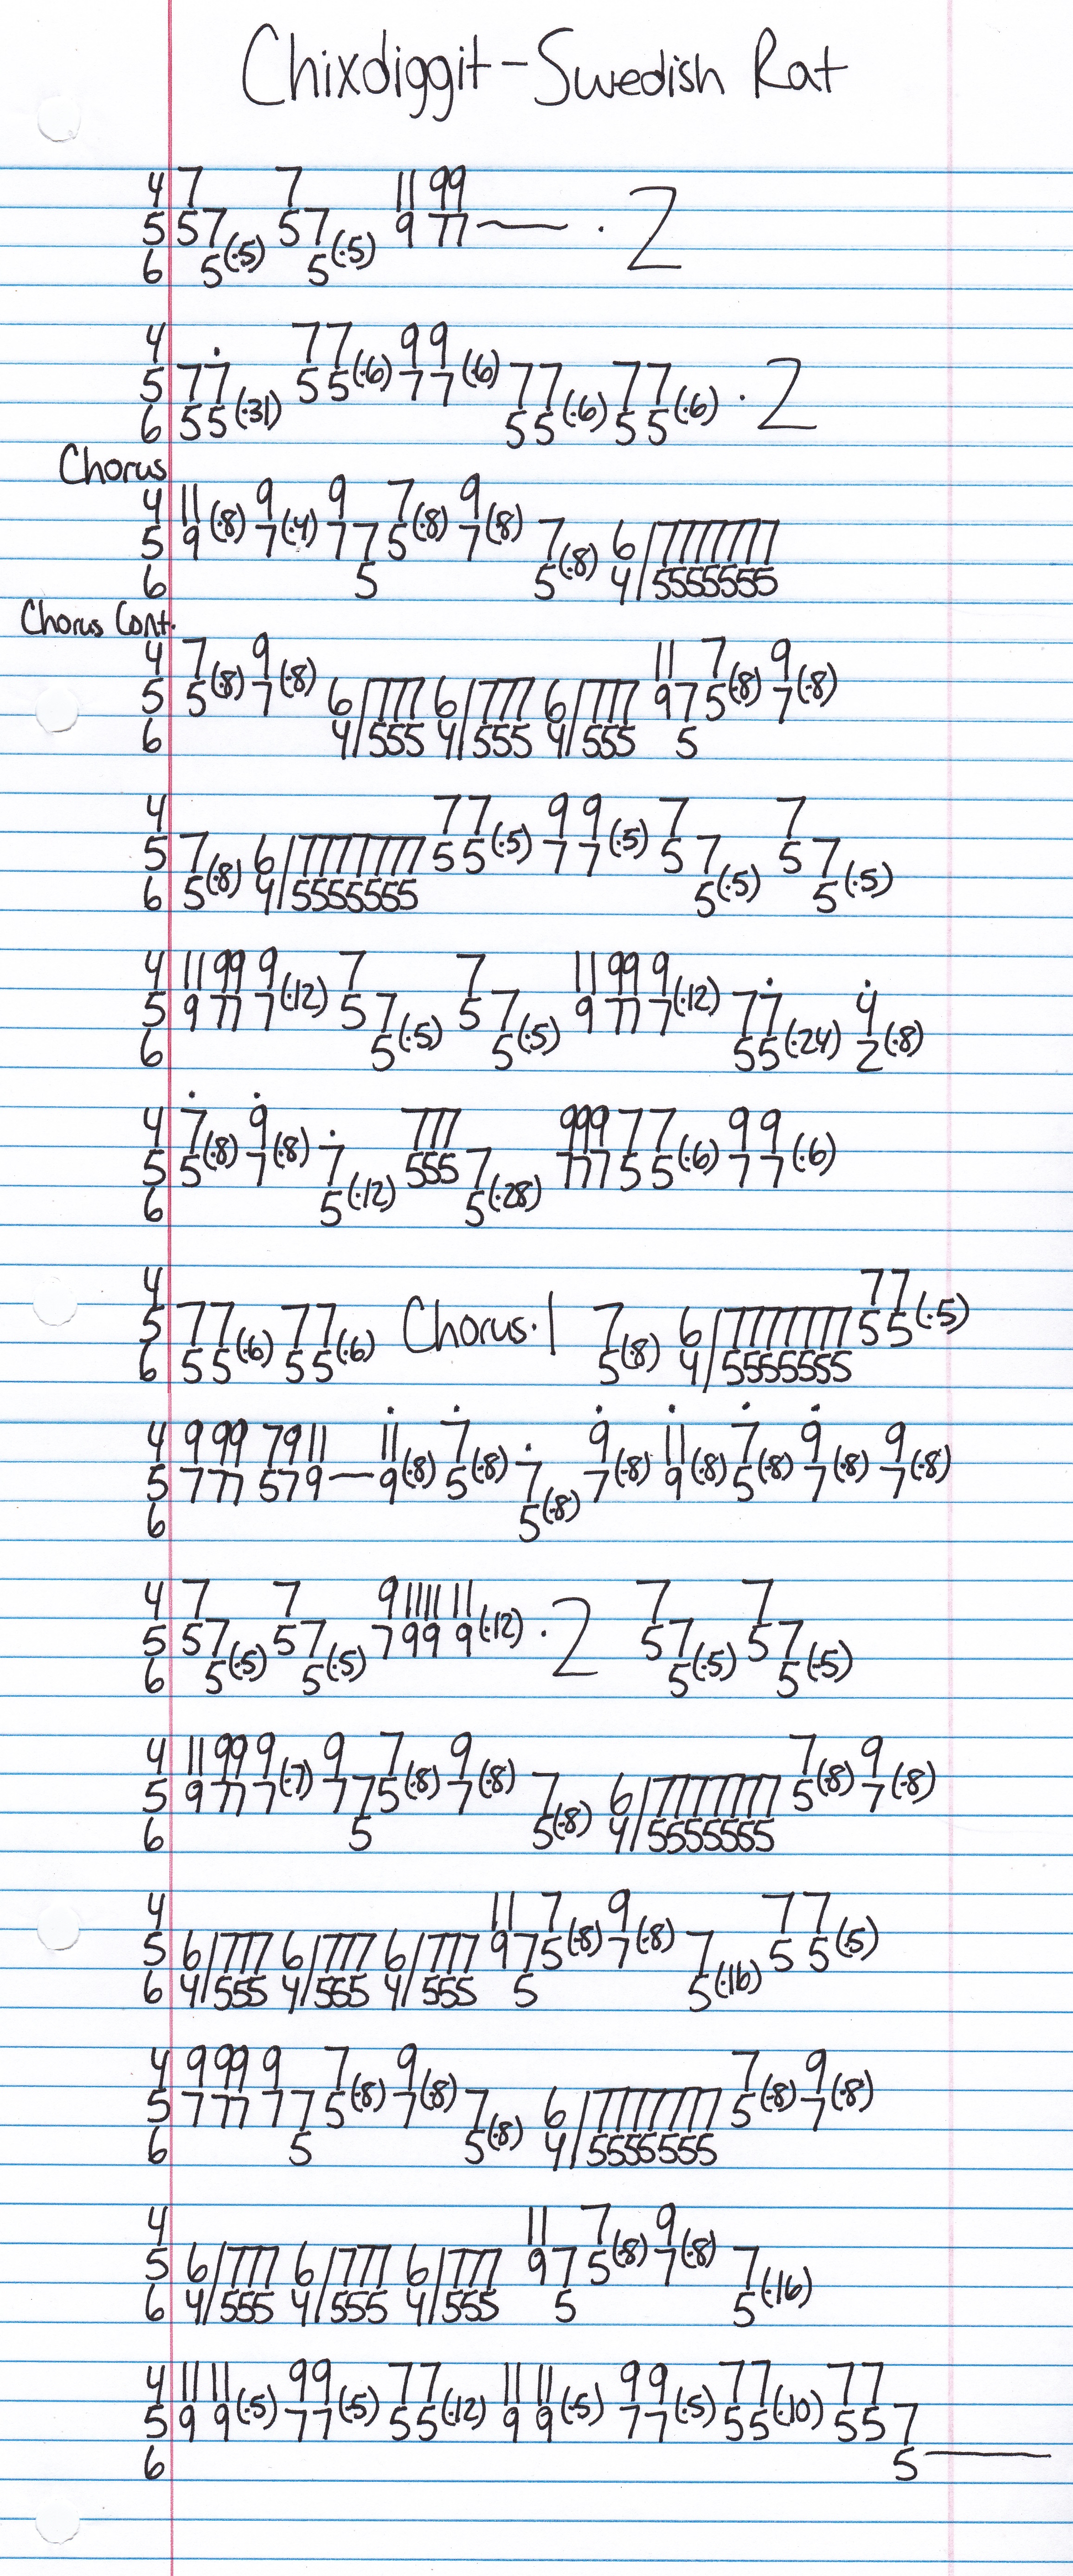 Chixdiggit - Swedish Rat
4 7 7 11 99
5 57(·5) 57(·5) 9 77 —— · 2
6 5 5
4 77(·6) 99(·6)
5 77 55 77 77(·6) 77(·6) · 2
6 55(·31) 55 55
Chorus
4 11(·8) 9(·4) 9 7(·8) 9(·8)
5 9 7 77 5 7 7(·8) 6/7777777
6 5 5 4/5555555
Chorus Cont.
4 7(·8) 9(·8) 11 7(·8) 9(·8)
5 5 7 6/777 6/777 6/777 97 5 7
6 4/555 4/555 4/555 5
4 77(·5) 99(·5) 7 7
5 7(·8) 6/7777777 55 77 57(·5) 57(·5)
6 5 4/5555555 5 5
4 11 99 9(·12) 7 7 11 99 9(·12)
5 9 77 7 57(·5) 57(·5) 9 77 7 77(·24) 4(·8)
6 5 5 55 2
4 7(·8) 9(·8) 777 999 77(·6) 99(·6)
5 5 7 7(·12) 555 7(·28) 777 55 77
6 5 5
4 77(·5)
5 77(·6) 77(·6) Chorus·1 7(·8) 6/7777777 55
6 55 55 5 4/5555555
4 9 99 7911 11(·8) 7(·8) 9(·8) 11(·8) 7(·8) 9(·8) 9(·8)
5 7 77 579 — 9 5 7(·8) 7 9 5 7 7
6 5
4 7 7 9 1111 11(·12) 7 7
5 57(·5) 57(·5) 7 99 9 · 2 57(·5) 57(·5)
6 5 5 5 5
4 11 99 9(·7) 9 7(·8) 9(·8) 7(·8) 9(·8)
5 9 77 7 77 5 7 7(·8) 6/7777777 5 7
6 5 5 4/5555555
4 11 7(·8) 9(·8) 77(·5)
5 6/777 6/777 6/777 97 5 7 7(·16) 55
6 4/555 4/555 4/555 5 5
4 9 99 9 7(·8) 9(·8) 7(·8) 9(·8)
5 7 77 77 5 7 7(·8) 6/7777777 5 7
6 5 5 4/5555555
4 11 7(·8) 9(·8)
5 6/777 6/777 6/777 97 5 7 7(·16)
6 4/555 4/555 4/555 5 5
4 11 11(·5) 99(·5) 77(·12) 11 11(·5) 99(·5) 77(·10) 77
5 9 9 77 55 9 9 77 55 55 7
6 5 ——